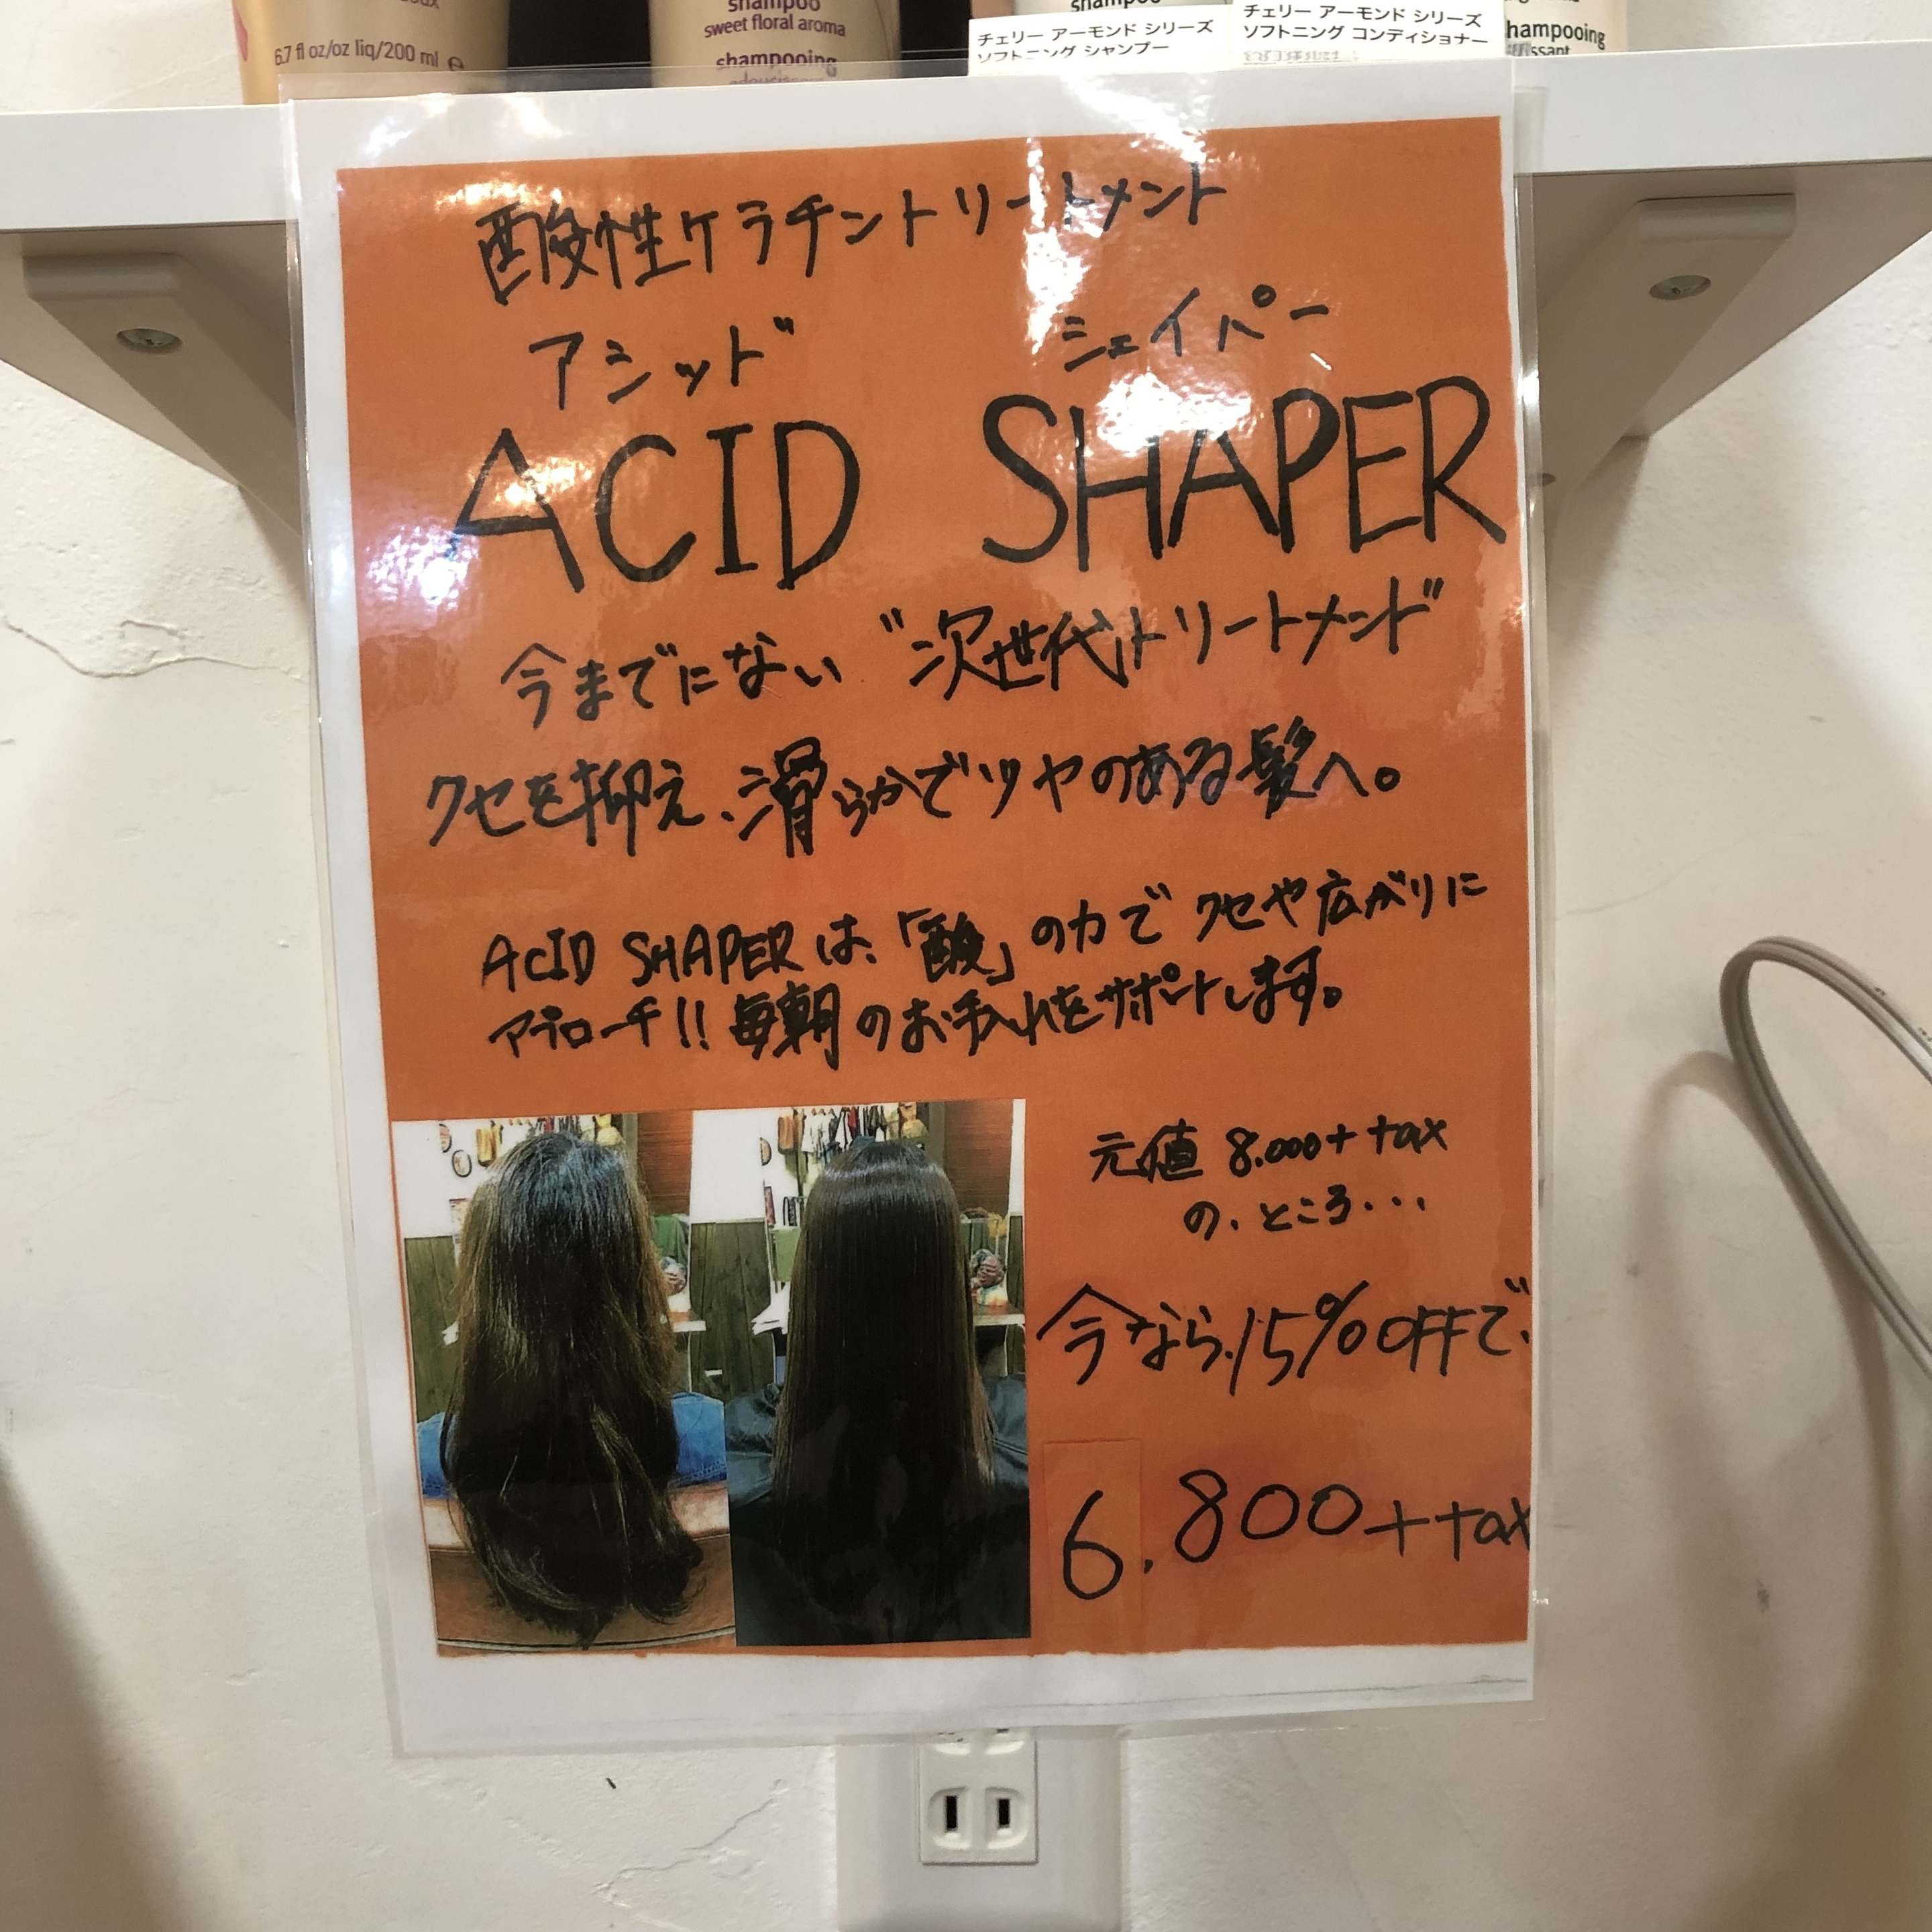 6.7 fl oz/oz liq/200 ml e
shampoo
sweet floral aroma
shampooing
shampoo
チェリー アーモンド シリーズ
ソフトニング シャンプー
チェリー アーモンド シリーズ
ソフトニング コンディショナー
shampooing
酸性ケラチントリートメント
アシッド シェイパー
ACID SHAPER
今までにない "次世代トリートメント"
クセを抑え、滑らかでツヤのある髪へ。
ACID SHAPER は、「酸」の力で クセや広がりに
アプローチ!! 毎朝のお手入れをサポートします。
元値 8.000+tax
の、ところ...
今なら、15%OFFで、
6.800+tax